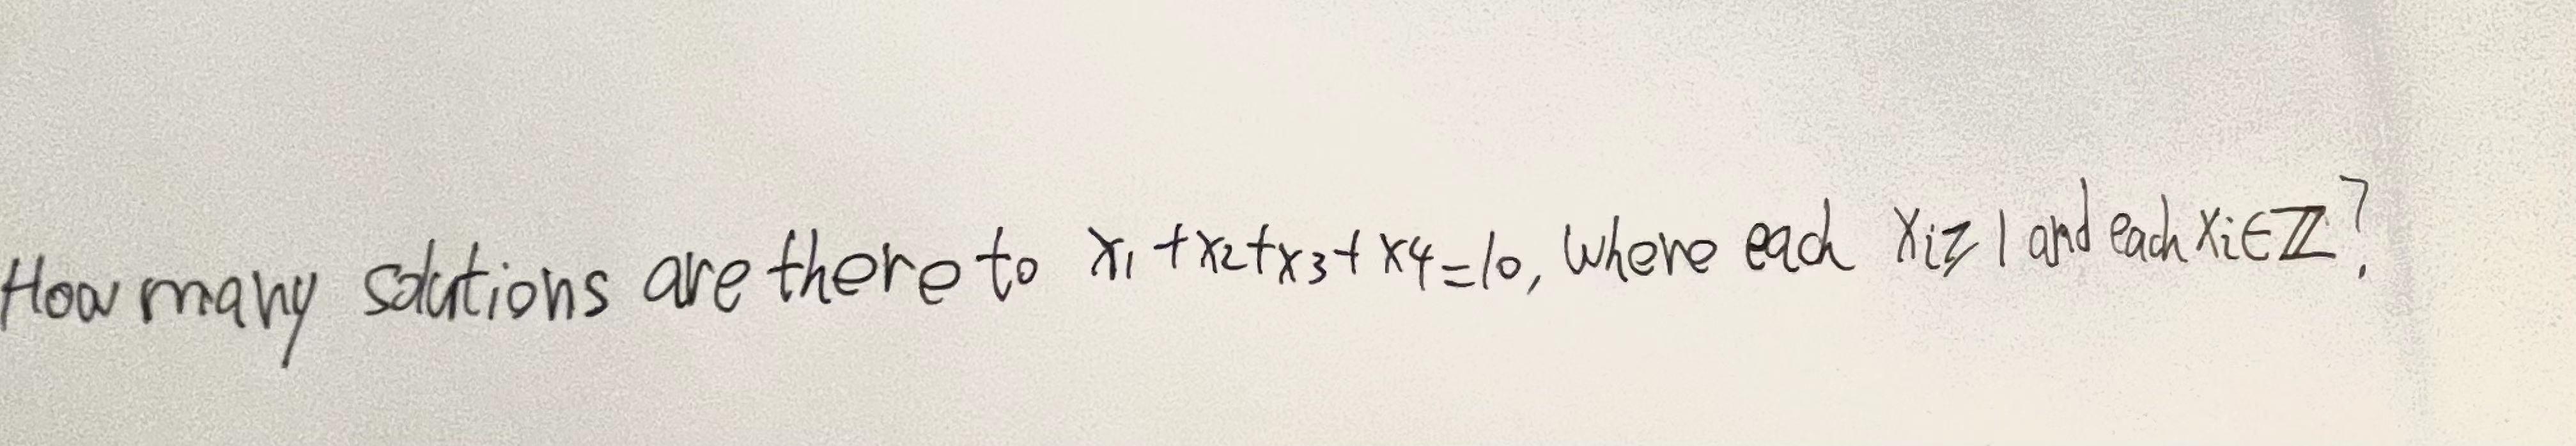 How many solutions are there to x₁+x₂+x₃+x₄=10, where each xᵢ≥1 and each xᵢ∈ℤ?